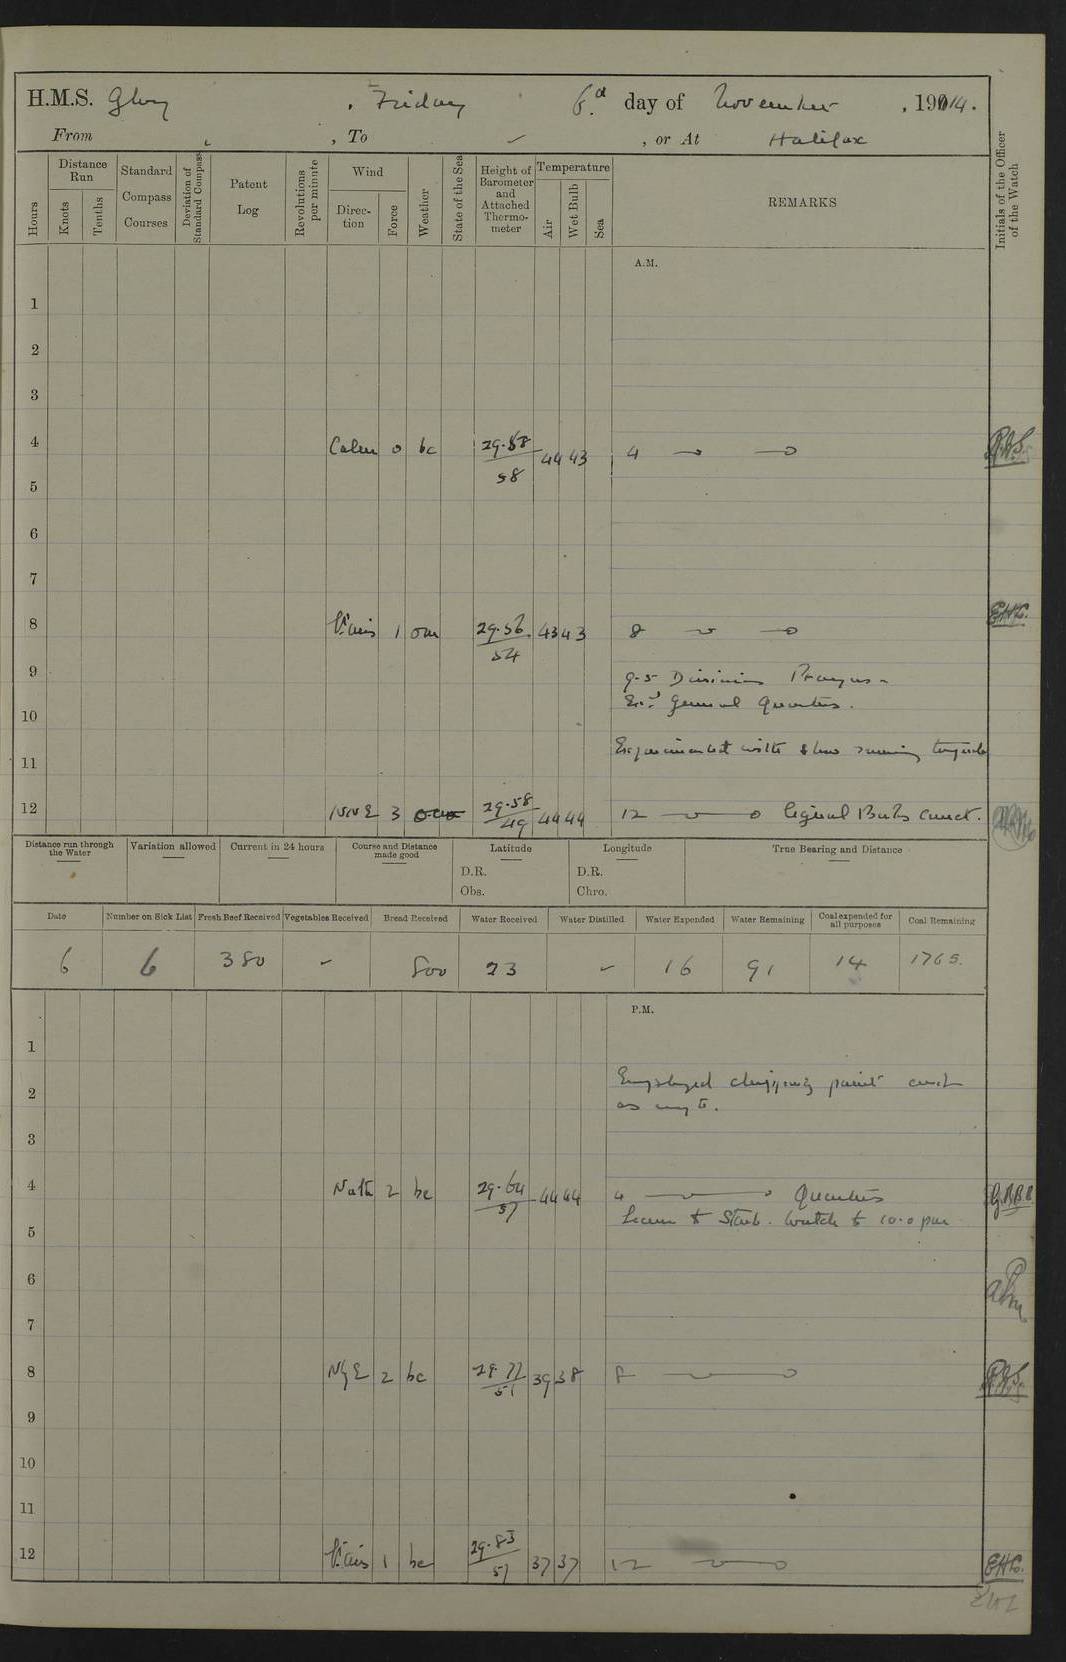 H.M.S. Glory , Friday 6th day of November , 1914.
From , To , or At Halifax
Hours
Distance Run
Knots
Tenths
Standard Compass Courses
Deviation of Standard Compass
Patent Log
Revolutions per minute
Wind
Direction
Force
Weather
State of the Sea
Height of Barometer and Attached Thermometer
Temperature
Air
Wet Bulb
Sea
REMARKS
Initials of the Officer of the Watch
A.M.
1
2
3
4 Calm 0 bc 29.58 58 44 43 4
5
6
7
8 Airs 1 om 29.56 54 43 43 8 EHG.
9 9.5 Divisions Prayers -
Exd General Quarters.
10
Experimented with
11
12 NNE 3 29.58 49 44 44 12
Distance run through the Water
Variation allowed
Current in 24 hours
Course and Distance made good
Latitude
D.R.
Obs.
Longitude
D.R.
Chro.
True Bearing and Distance
Date Number on Sick List Fresh Beef Received Vegetables Received Bread Received Water Received Water Distilled Water Expended Water Remaining Coal expended for all purposes Coal Remaining
6 6 380 - 800 23 - 16 91 14 1765.
P.M.
1
Employed chipping paint and
2 as reqd.
3
4 North 2 bc 29.64 57 44 44 4 Quarters
Leave to Starb. Watch to 10.0 pm
5
6
7
8 NbyE 2 bc 29.77 51 39 38 8
9
10
11
12 Airs 1 bc 29.83 57 37 37 12 EHG.